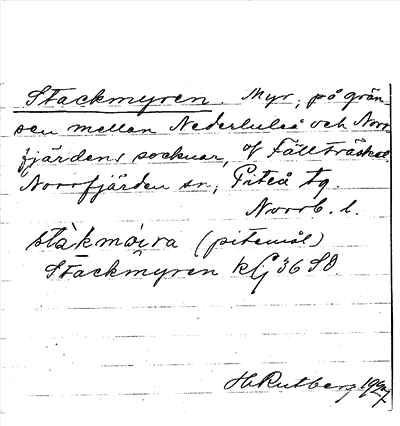 Stackmyren. Myr, på grän
sen mellan Nederluleå och Norr
fjärdens socknar, af Fällträsket
Norrfjärden sn, Piteå tg.
Norrb. l.
stàkmöira (pitemål)
Stackmyren kG 36 SO.
H. Rutberg 1927